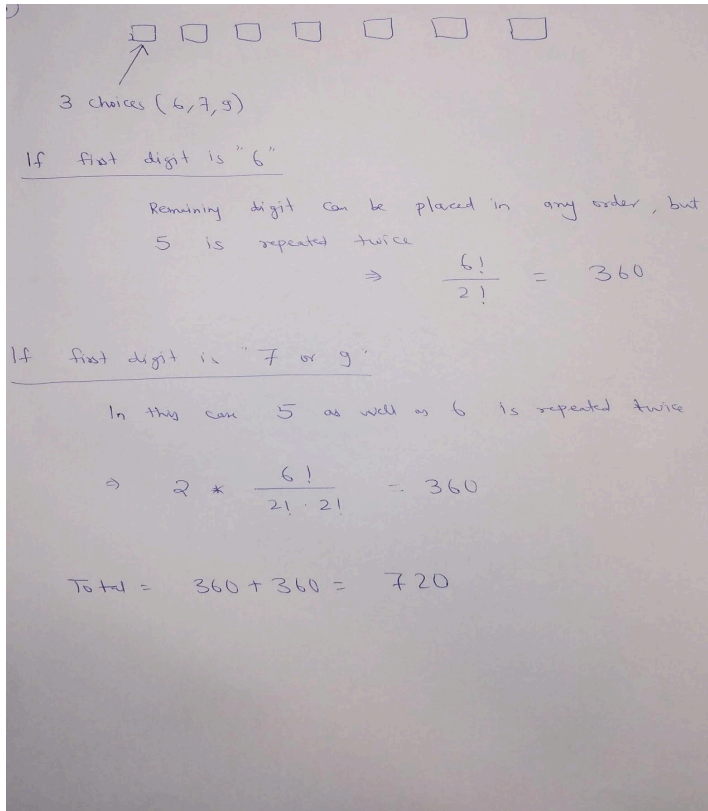 3 choices (6,7,9)
If first digit is "6"
Remaining digit can be placed in any order, but
5 is repeated twice
⇒ 6!/2! = 360
If first digit is "7 or 9"
In this case 5 as well as 6 is repeated twice
⇒ 2 * 6!/2!·2! = 360
Total = 360 + 360 = 720